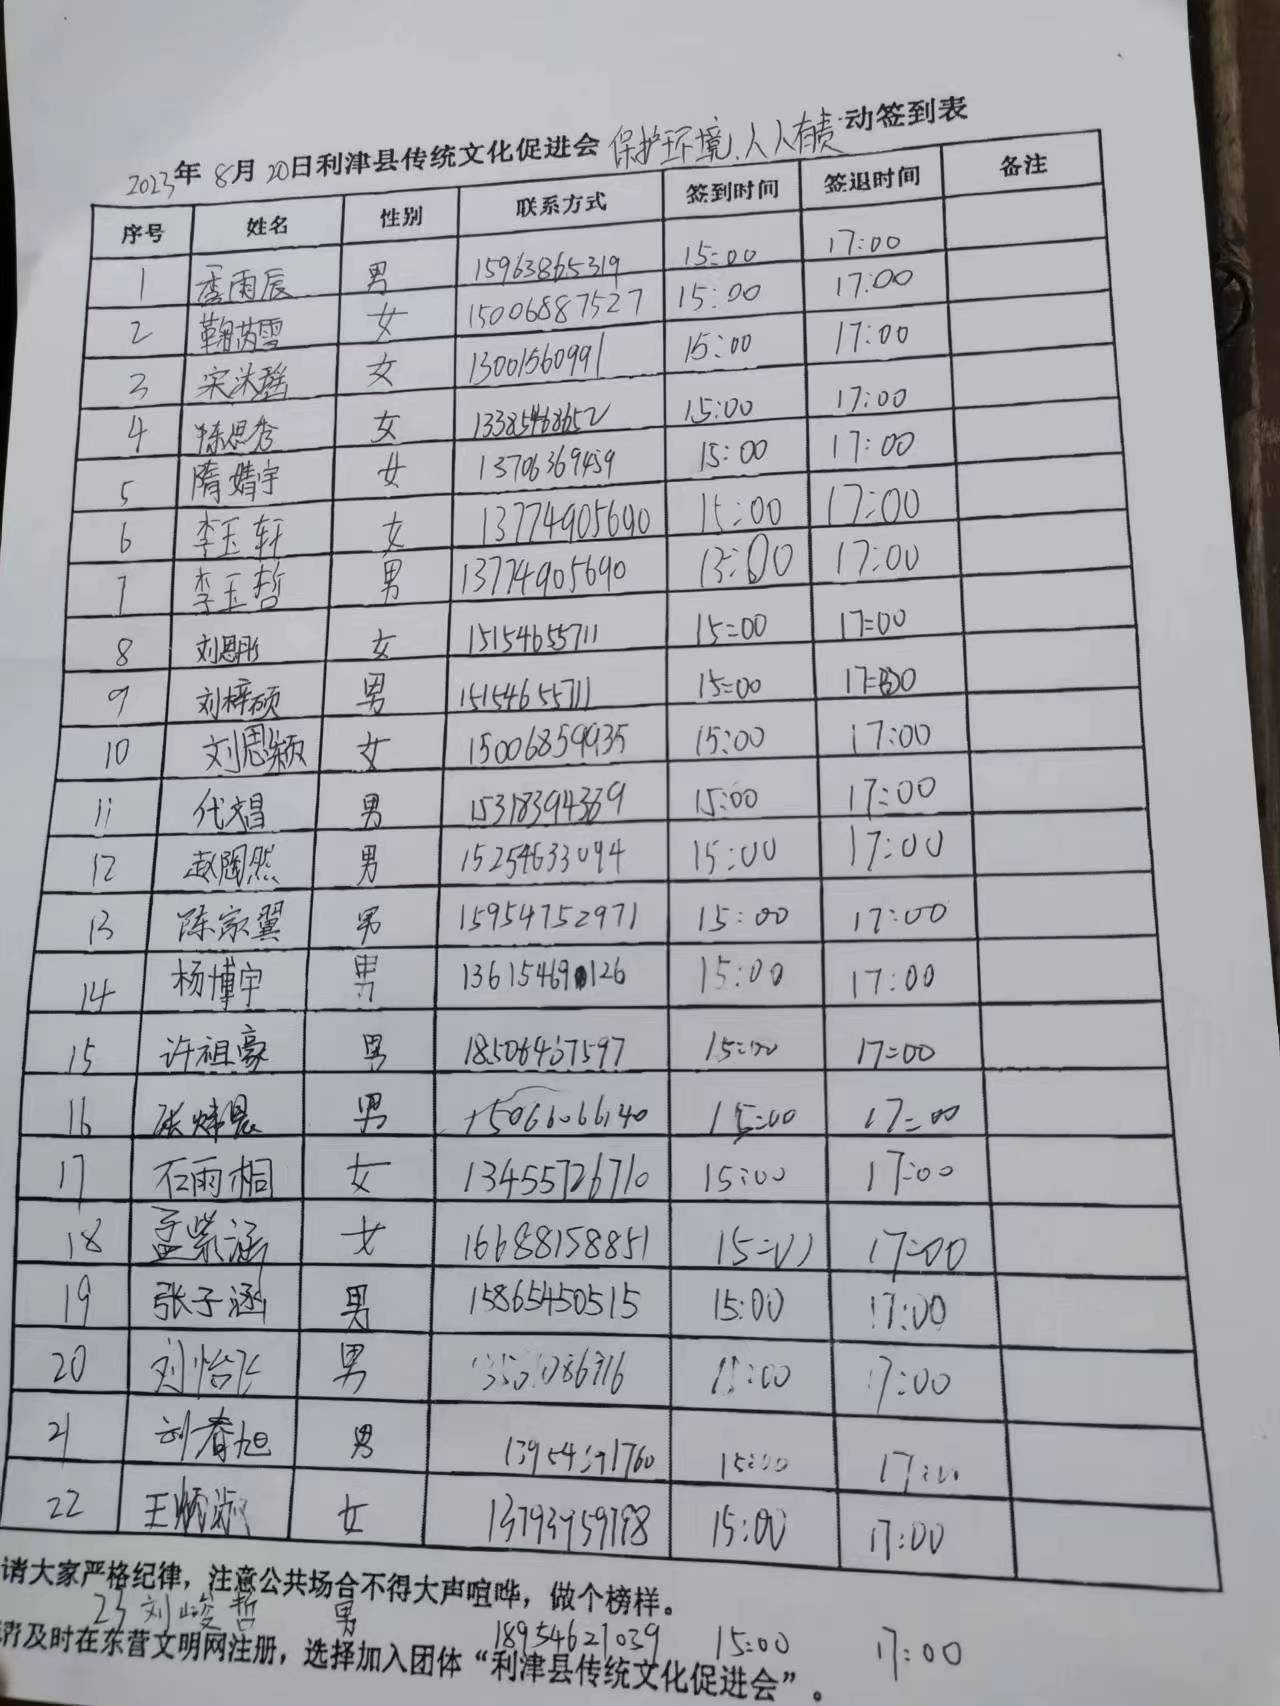 2023年 8月 20日利津县传统文化促进会 保护环境、人人有责 动签到表
序号 姓名 性别 联系方式 签到时间 签退时间 备注
1 雨辰 男 15963865319 15:00 17:00
2 鞠芮雪 女 15006887527 15:00 17:00
3 宋沐瑶 女 13001560991 15:00 17:00
4 陈思秀 女 13385468652 15:00 17:00
5 隋婧宇 女 13706369459 15:00 17:00
6 李玉轩 女 13774905690 15:00 17:00
7 李玉哲 男 13774905690 15:00 17:00
8 刘思彤 女 15154655711 15:00 17:00
9 刘梓硕 男 15154655711 15:00 17:00
10 刘思颖 女 15006859935 15:00 17:00
11 代文昌 男 15318394389 15:00 17:00
12 赵陶然 男 15254633094 15:00 17:00
13 陈家翼 男 15954752971 15:00 17:00
14 杨博宇 男 13615469126 15:00 17:00
15 许祖豪 男 15:00 17:00
16 男 15066066140 15:00 17:00
17 石雨桐 女 13455726710 15:00 17:00
18 孟紫涵 女 16688158851 15:00 17:00
19 张子涵 男 15865450515 15:00 17:00
20 刘怡 男 17:00
21 刘春旭 男 15:00 17:00
22 王炳淑 女 15:00 17:00
请大家严格纪律，注意公共场合不得大声喧哗，做个榜样。
23 刘峻哲 男 18954621039 15:00 17:00
请及时在东营文明网注册，选择加入团体“利津县传统文化促进会”。